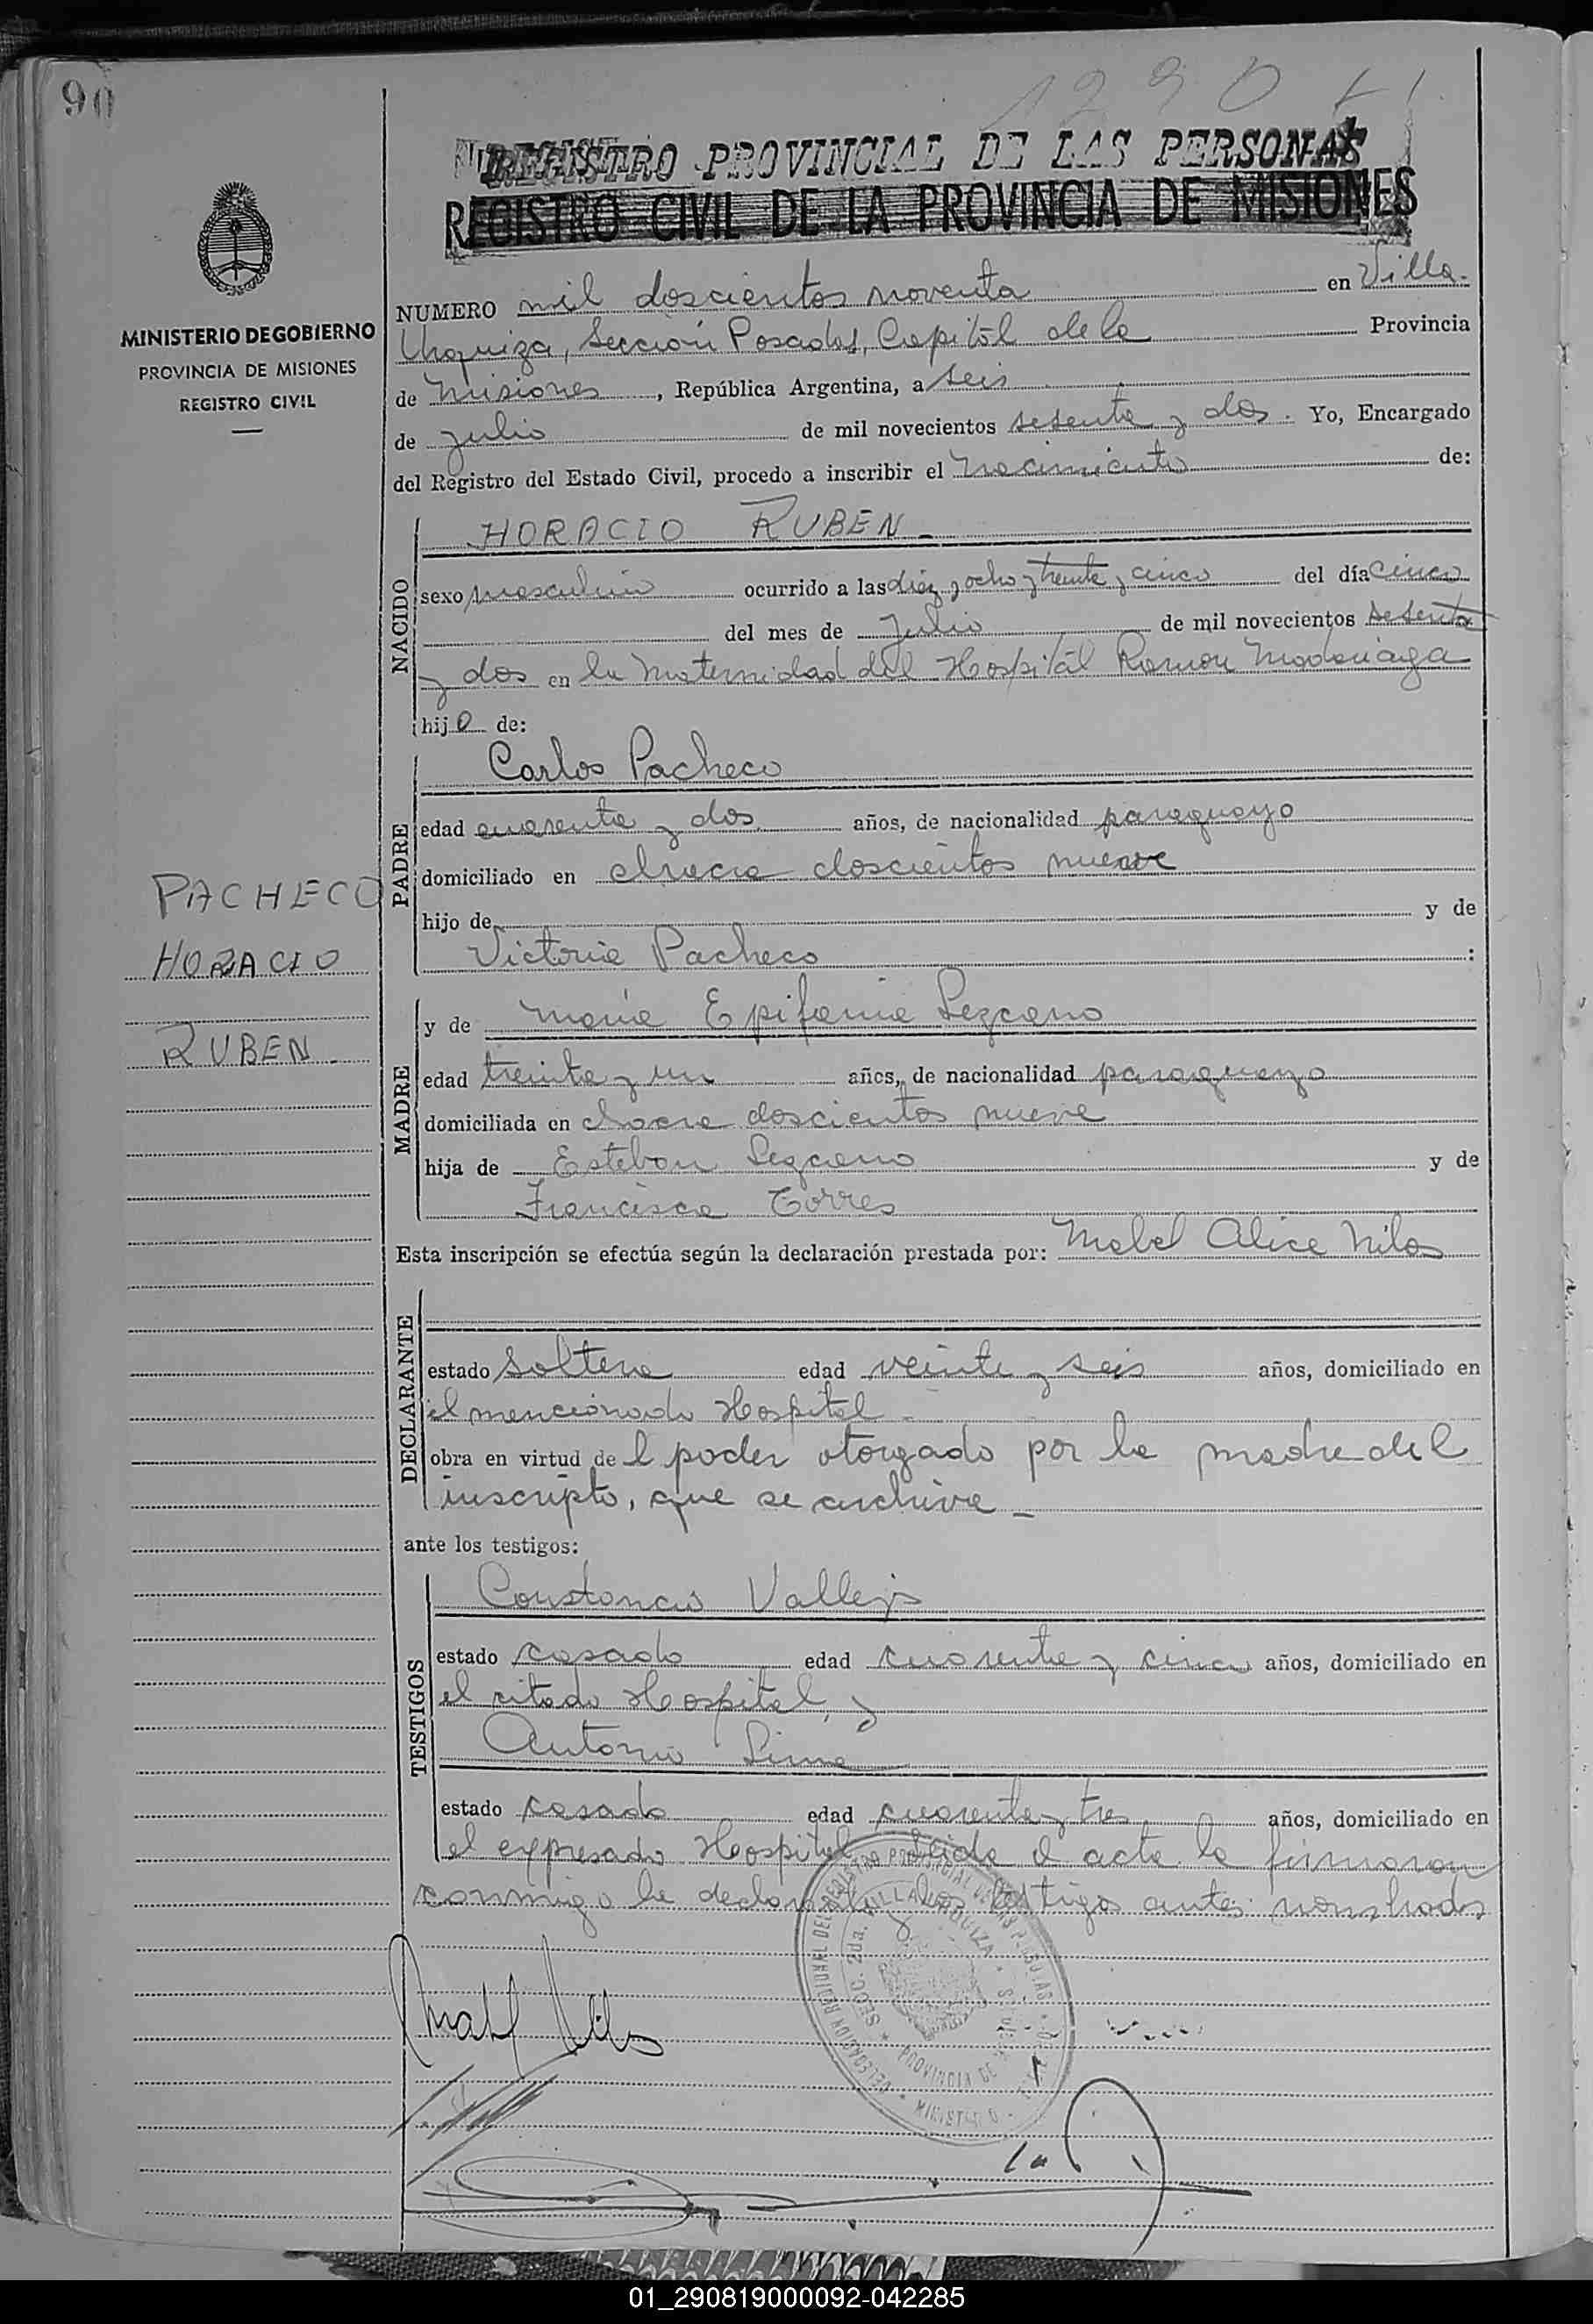 90
1290
REGISTRO PROVINCIAL DE LAS PERSONAS
REGISTRO CIVIL DE LA PROVINCIA DE MISIONES
MINISTERIO DE GOBIERNO
PROVINCIA DE MISIONES
REGISTRO CIVIL
NUMERO mil doscientos noventa en Villa
Urquiza, Sección Posadas, Capital de la Provincia
de Misiones, República Argentina, a seis
de Julio de mil novecientos sesenta y dos. Yo, Encargado
del Registro del Estado Civil, procedo a inscribir el nacimiento de:
NACIDO
HORACIO RUBEN
sexo masculino ocurrido a las diez y ocho y treinta y cinco del día cinco
del mes de Julio de mil novecientos sesenta
y dos en la Maternidad del Hospital Ramon Madariaga
hijo de:
PADRE
Carlos Pacheco
edad cuarenta y dos años, de nacionalidad paraguayo
domiciliado en chacra doscientos nueve
hijo de y de
Victoria Pacheco :
PACHECO
HORACIO
RUBEN
MADRE
y de Maria Epifania Lezcano
edad treinta y un años, de nacionalidad paraguaya
domiciliada en chacra doscientos nueve
hija de Esteban Lezcano y de
Francisca Torres
Esta inscripción se efectúa según la declaración prestada por: Mabel Alice Nilos
DECLARANTE
estado Soltera edad veinte y seis años, domiciliado en
el mencionado Hospital
obra en virtud del poder otorgado por la madre del
inscripto, que se archiva
ante los testigos:
TESTIGOS
Constancio Vallejo
estado casado edad cuarenta y cinco años, domiciliado en
el citado Hospital, y
Antonio
estado casado edad cuarenta y tres años, domiciliado en
el expresado Hospital. Leida el acta la firmaron
conmigo la declarante y los testigos antes nombrados
SECC. 2da. VILLA URQUIZA
PROVINCIA DE
01_290819000092-042285